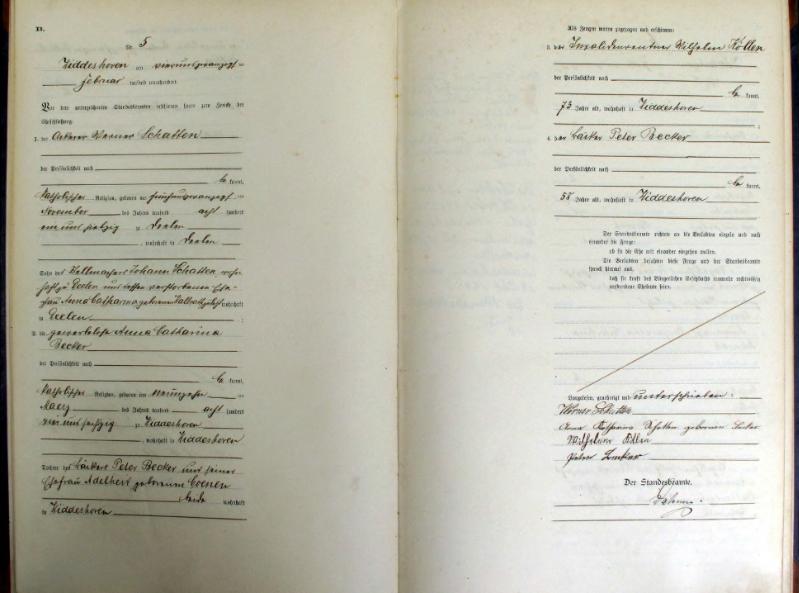 Nr. 5
Hiddeshoven am vierundzwanzigsten
Februar tausend neunhundert
Vor dem unterzeichneten Standesbeamten erschienen heute zum Zwecke der
Eheschließung:
1. der Ackerer Werner Schatten
der Persönlichkeit nach
be kannt,
katholischer Religion, geboren am fünfundzwanzigsten
November des Jahres tausend acht hundert
ein und sechzig zu
, wohnhaft in
Sohn des Johann Schatten
zu und dessen verstorbenen Ehe-
frau Anna Catharina geborenen wohnhaft
in
2. die gewerblose Anna Catharina
Becker
der Persönlichkeit nach
be kannt,
katholischer Religion, geboren am neunzehnten
März des Jahres tausend acht hundert
vier und sechzig zu Hiddeshoven
, wohnhaft in Hiddeshoven
Tochter des Bäckers Peter Becker und seiner
Ehefrau Adelheid geborenen Coenen
beide wohnhaft
in Hiddeshoven
Als Zeugen waren zugezogen und erschienen:
3. der Invalidenrentner Wilhelm Köllen
der Persönlichkeit nach
be kannt,
73 Jahre alt, wohnhaft in Hiddeshoven
4. der Bäcker Peter Becker
der Persönlichkeit nach
be kannt,
58 Jahre alt, wohnhaft in Hiddeshoven
Der Standesbeamte richtete an die Verlobten einzeln und nach
einander die Frage:
ob sie die Ehe mit einander eingehen wollen.
Die Verlobten bejahten diese Frage und der Standesbeamte
sprach hierauf aus,
daß sie kraft des Bürgerlichen Gesetzbuchs nunmehr rechtmäßig
verbundene Eheleute seien.
Vorgelesen, genehmigt und unterschrieben:
Werner Schatten
Anna Katharina Schatten geborenen Becker
Wilhelm Köllen
Peter Becker
Der Standesbeamte.